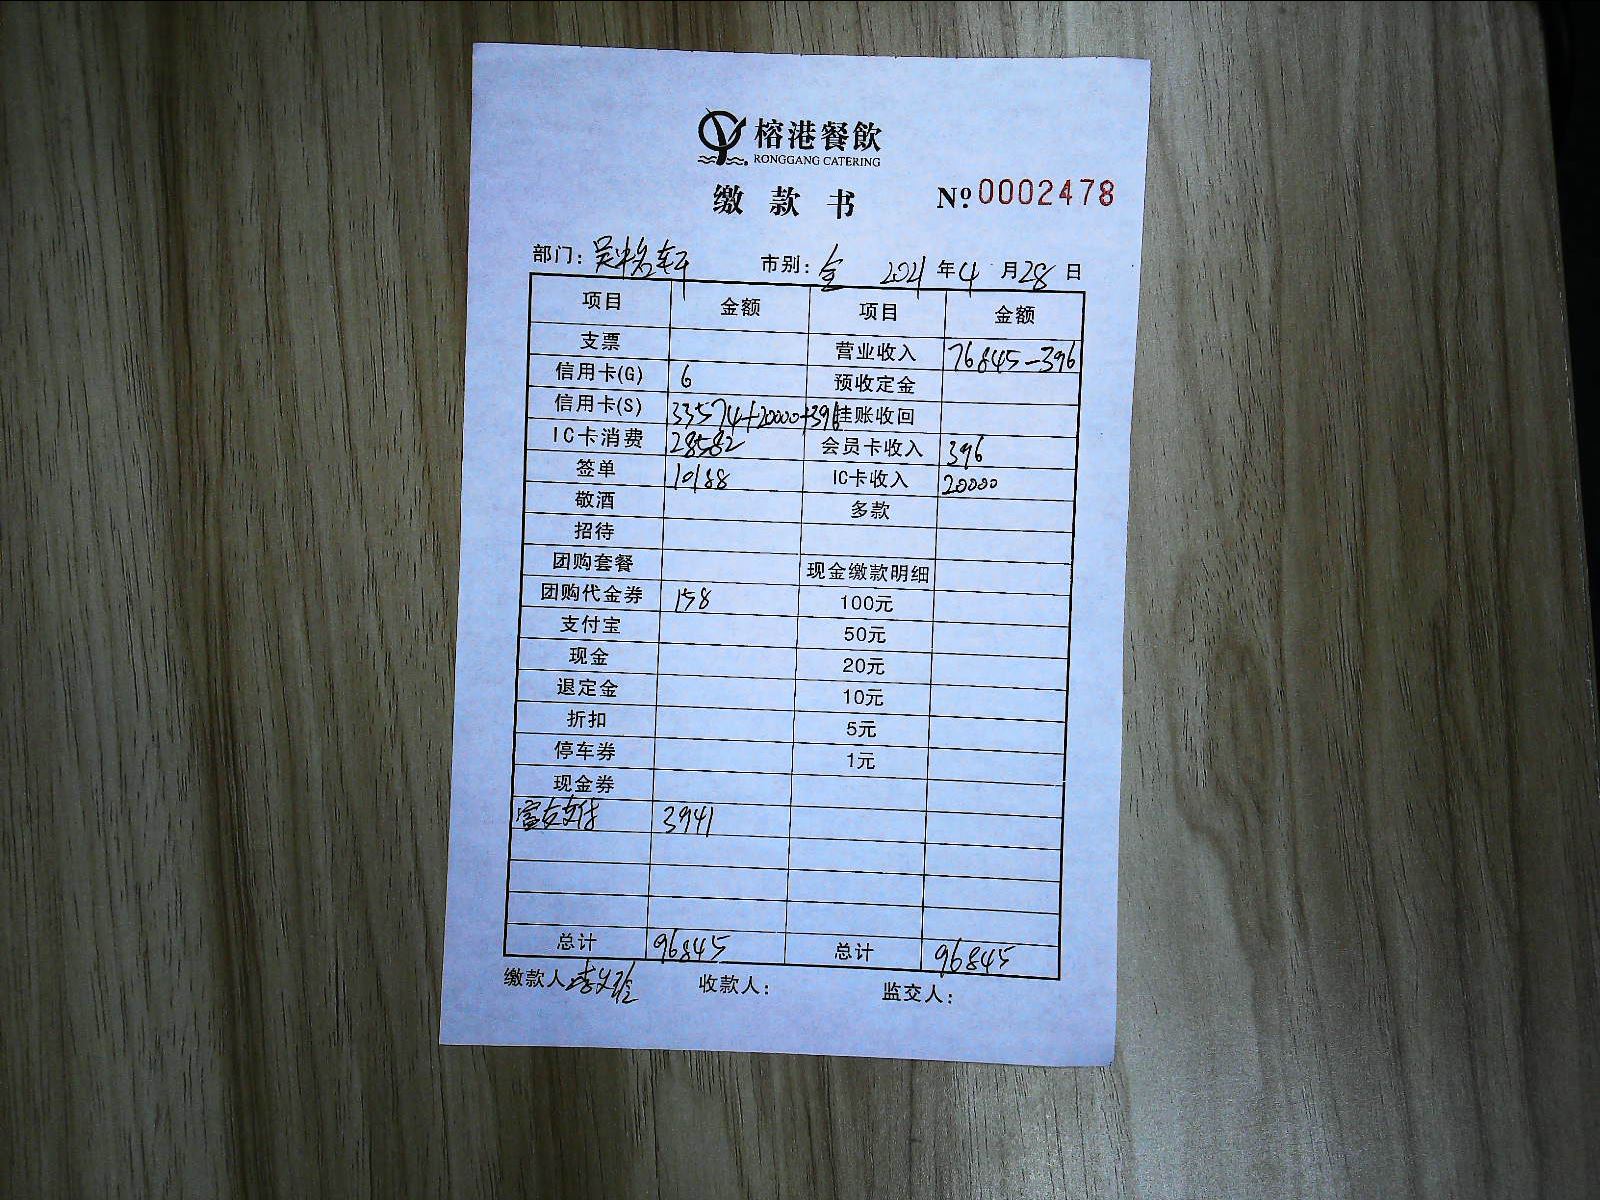 榕港餐飲
RONGGANG CATERING
缴款书 Nº.0002478
部门: 吴中名轩 市别: 全 2021年4月28日
项目 金额 项目 金额
支票 营业收入 76845-396
信用卡(G) 6 预收定金
信用卡(S) 33574+20000+396 挂账收回
IC卡消费 28582 会员卡收入 396
签单 10188 IC卡收入 20000
敬酒 多款
招待
团购套餐 现金缴款明细
团购代金券 158 100元
支付宝 50元
现金 20元
退定金 10元
折扣 5元
停车券 1元
现金券
富友支付 3941
总计 96845 总计 96845
缴款人 李 收款人: 监交人: